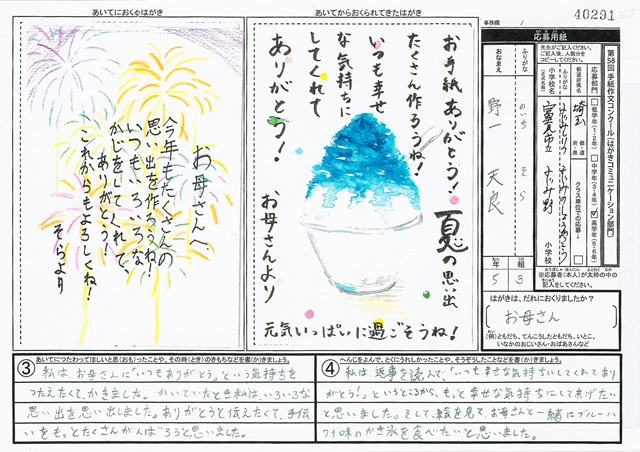 あいてにおくるはがき
お母さんへ
今年もたくさんの
思い出を作ろうね!
いつもいろいろな
かじをしてくれて、
ありがとう!
これからもよろしくね!
そらより
あいてからおくられてきたはがき
お手紙ありがとう!
たくさん作ろうね!
いつも幸せ
な気持ちに
してくれて
ありがとう!
お母さんより
夏の思い出
元気いっぱいに過ごそうね!
事務欄
40291
第58回 手紙作文コンクール(はがきコミュニケーション部門)
応募用紙
先生がご記入ください。
ご記入後、人数分を
コピーしてください。
応募部門
低学年(1・2年)
中学年(3・4年)
高学年(5・6年)
都道府県名
埼玉
都 道
府・県
クラス単位での応募
ふりがな
小学校名
(正式名称)
富士見市立
小学校
ふりがな
のいち そら
おなまえ
野一 天良
年 組
5 3
※応募者(本人)が太枠の中の
記入をしてください。
はがきは、だれにおくりましたか?
お母さん
(例)ともだち、てんこうしたともだち、いとこ、
いなかのおじいさん・おばあさんなど
③
あいてにつたわってほしいと思(おも)ったことや、その時(とき)のきもちなどを書(か)きましょう。
私はお母さんに「いつもありがとう。」という気持ちを
つたえたくて、かきました。かいていたとき私は、いろいろな
思い出を思い出しました。ありがとうと伝えたくて、手伝
いをもっとたくさんがんばろうと思いました。
④
へんじをよんで、とくにうれしかったことや、そうぞうしたことなどを書(か)きましょう。
私は返事を読んで、「いつも幸せな気持ちにしてくれてあり
がとう!」というところから、もっと幸せな気持ちにしてあげたい
と思いました。そして、絵を見て、お母さんと一緒にブルーハ
ワイ味のかき氷を食べたいと思いました。